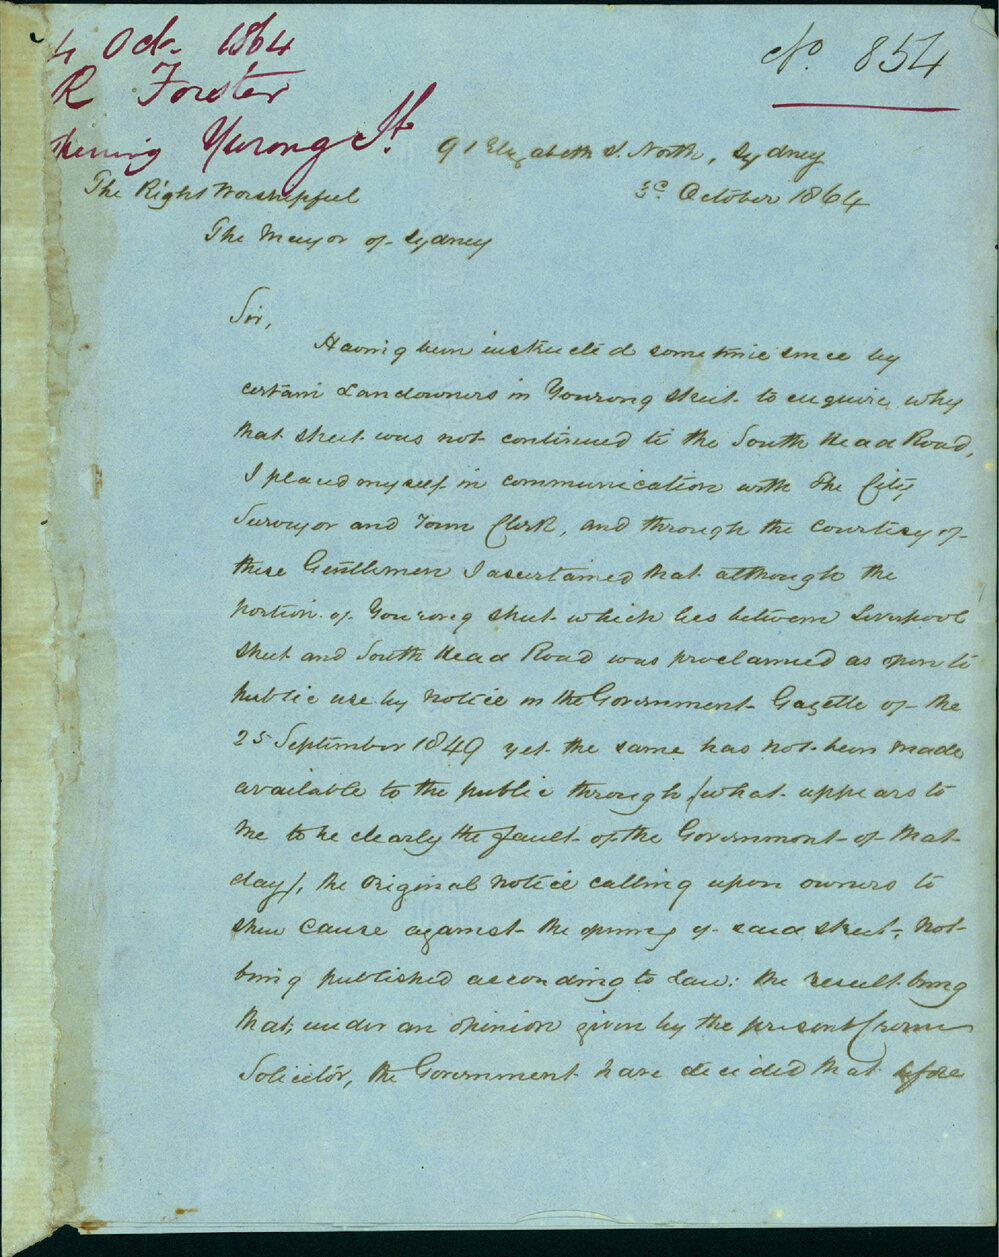 4 Oct. 1864
R Forster
Opening Yurong St.
No. 854
91 Elizabeth St. North, Sydney
3d. October 1864
The Right Worshipful
The Mayor of Sydney
Sir,
Having been instructed sometime since by
certain Landowners in Yourong Street to enquire why
that street was not continued to the South Head Road,
I placed myself in communication with the City
Surveyor and Town Clerk, and through the courtesy of
these Gentlemen I ascertained that although the
portion of Yourong Street which lies between Liverpool
Street and South Head Road was proclaimed as open to
public use by notice in the Government Gazette of the
25 September 1849 yet the same has not been made
available to the public through (what appears to
me to be clearly the fault of the Government of that
day), the original notice calling upon owners to
shew cause against the opening of said street, not
being published according to Law: the result being
that, under an opinion given by the present Crown
Solicitor, the Government have decided that before